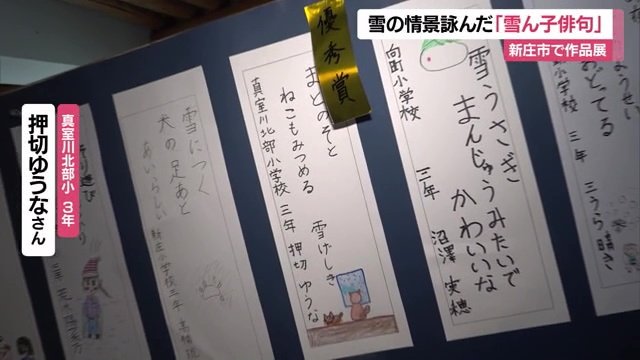 雪の情景詠んだ「雪ん子俳句」
新庄市で作品展
真室川北部小 3年
押切ゆうなさん
向町小学校
雪うさぎ
まんじゅうみたいで
かわいいな
三年 沼澤 実穂
優秀賞
まどのそと
ねこもみつめる
雪げしき
真室川北部小学校 三年 押切 ゆうな
雪につく
犬の足あと
あいらしい
新庄小学校三年
おどってる
小学校 三年